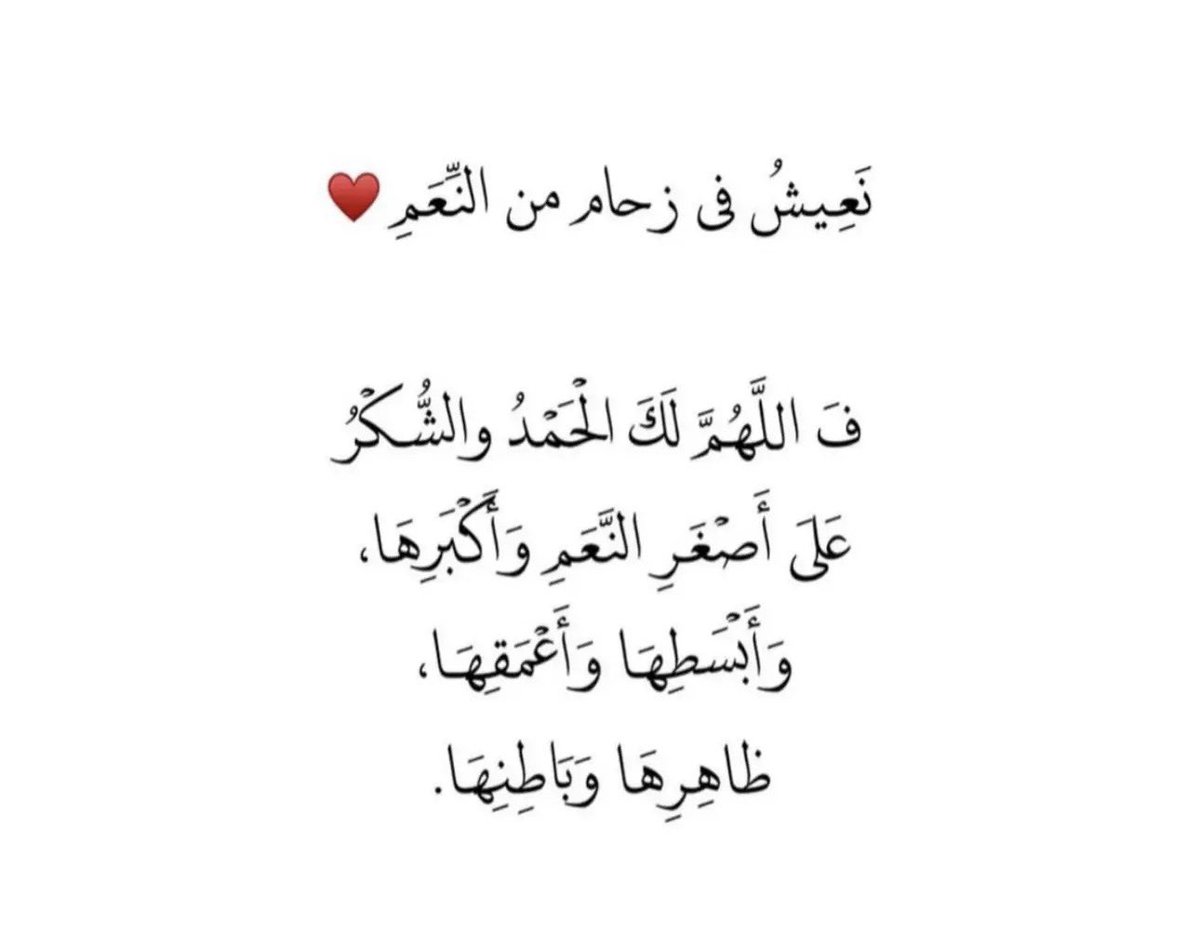 نَعِيشُ فى زحام من النِّعَمِ ♥️
فَ اللَّهُمَّ لَكَ الْحَمْدُ والشُّكْرُ
عَلَى أَصْغَرِ النَّعَمِ وَأَكْبَرِهَا،
وَأَبْسَطِهَا وَأَعْمَقِهَا،
ظاهِرِهَا وَبَاطِنِهَا.